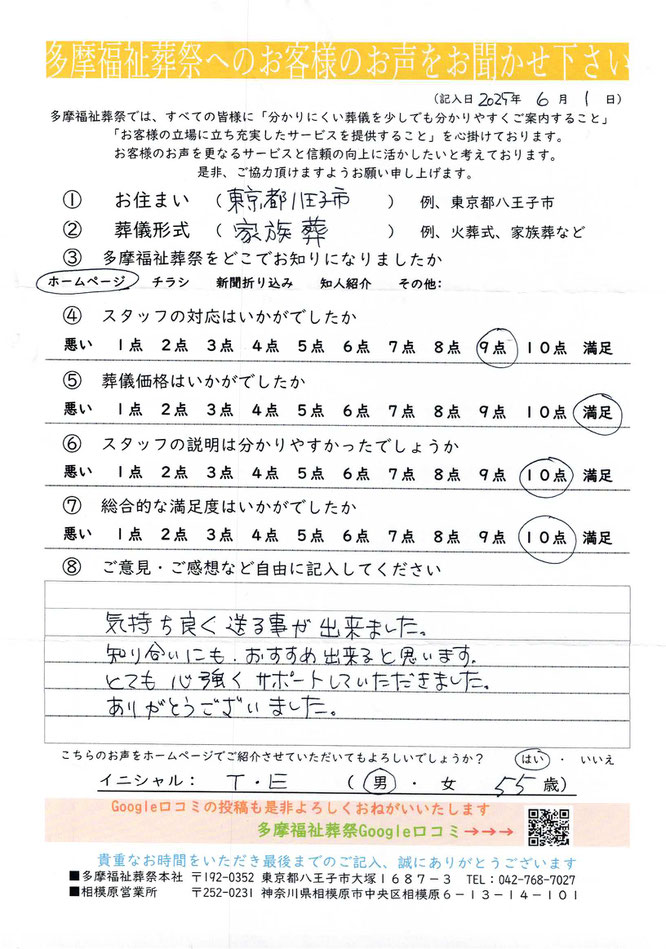 多摩福祉葬祭へのお客様のお声をお聞かせ下さい
（記入日 2025年 6 月 1 日）
多摩福祉葬祭では、すべての皆様に「分かりにくい葬儀を少しでも分かりやすくご案内すること」
「お客様の立場に立ち充実したサービスを提供すること」を心掛けております。
お客様のお声を更なるサービスと信頼の向上に活かしたいと考えております。
是非、ご協力頂けますようお願い申し上げます。
① お住まい （東京都八王子市 ） 例、東京都八王子市
② 葬儀形式 （家族葬 ） 例、火葬式、家族葬など
③ 多摩福祉葬祭をどこでお知りになりましたか
ホームページ チラシ 新聞折り込み 知人紹介 その他：
④ スタッフの対応はいかがでしたか
悪い １点 ２点 ３点 ４点 ５点 ６点 ７点 ８点 ９点 １０点 満足
⑤ 葬儀価格はいかがでしたか
悪い １点 ２点 ３点 ４点 ５点 ６点 ７点 ８点 ９点 １０点 満足
⑥ スタッフの説明は分かりやすかったでしょうか
悪い １点 ２点 ３点 ４点 ５点 ６点 ７点 ８点 ９点 １０点 満足
⑦ 総合的な満足度はいかがでしたか
悪い １点 ２点 ３点 ４点 ５点 ６点 ７点 ８点 ９点 １０点 満足
⑧ ご意見・ご感想など自由に記入してください
気持ち良く送る事が出来ました。
知り合いにも、おすすめ出来ると思います。
とても心強くサポートしていただきました。
ありがとうございました。
こちらのお声をホームページでご紹介させていただいてもよろしいでしょうか？ はい ・ いいえ
イニシャル： T・E （ 男 ・ 女 55 歳）
Google口コミの投稿も是非よろしくおねがいいたします
多摩福祉葬祭Google口コミ→→→
貴重なお時間をいただき最後までのご記入、誠にありがとうございます
■多摩福祉葬祭本社 〒192-0352 東京都八王子市大塚１６８７－３ TEL：042-768-7027
■相模原営業所 〒252-0231 神奈川県相模原市中央区相模原６－１３－１４－１０１